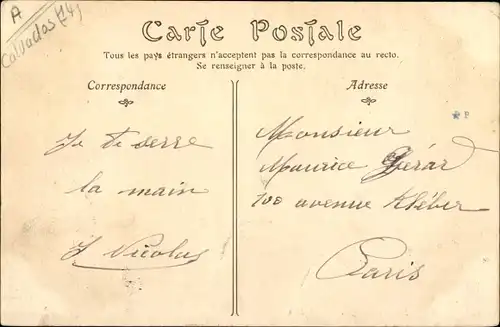 A
Calvados (14)
Carte Postale
Tous les pays étrangers n'acceptent pas la correspondance au recto.
Se renseigner à la poste.
Correspondance
Je te serre
la main
J Nicolas
Adresse
Monsieur
Maurice Gérar
108 avenue Kléber
Paris